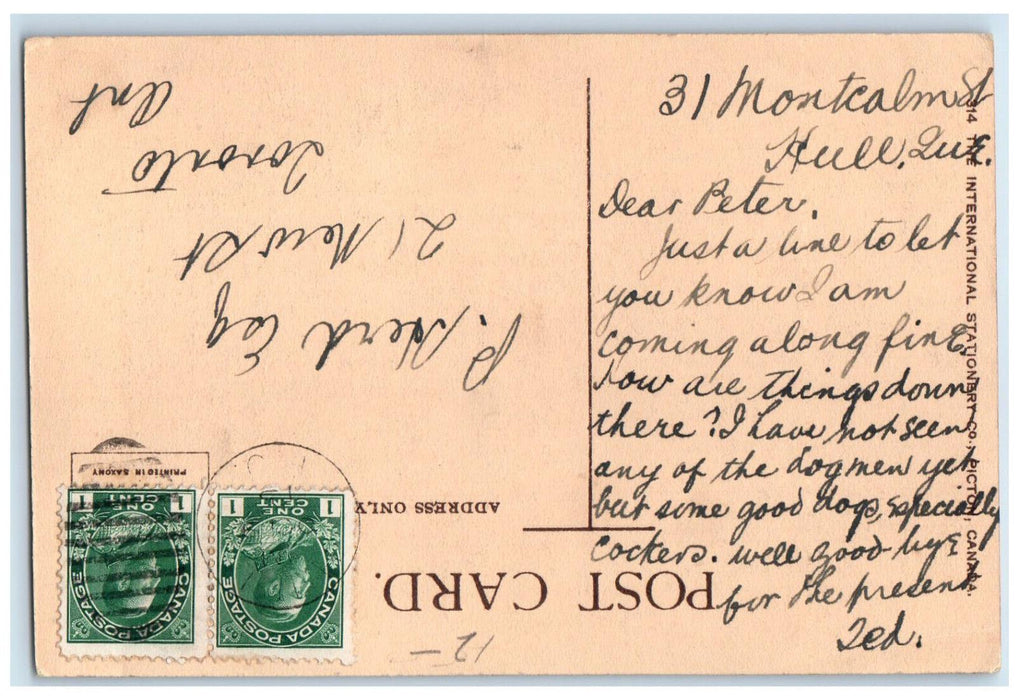 31 Montcalm St
Hull, Que.
Dear Peter,
Just a line to let
you know I am
coming along fine.
How are things down
there? I have not seen
any of the dogmen yet
but some good dogs, especially
cockers. well good-bye
for the present
Ted.
POST CARD.
ADDRESS ONLY
PRINTED IN SAXONY
P. Herd Esq
21 New St
Toronto
Ont
CANADA POSTAGE
ONE CENT
1 1
CANADA POSTAGE
ONE CENT
1 1
314 THE INTERNATIONAL STATIONERY CO., PICTON, CANADA.
12-